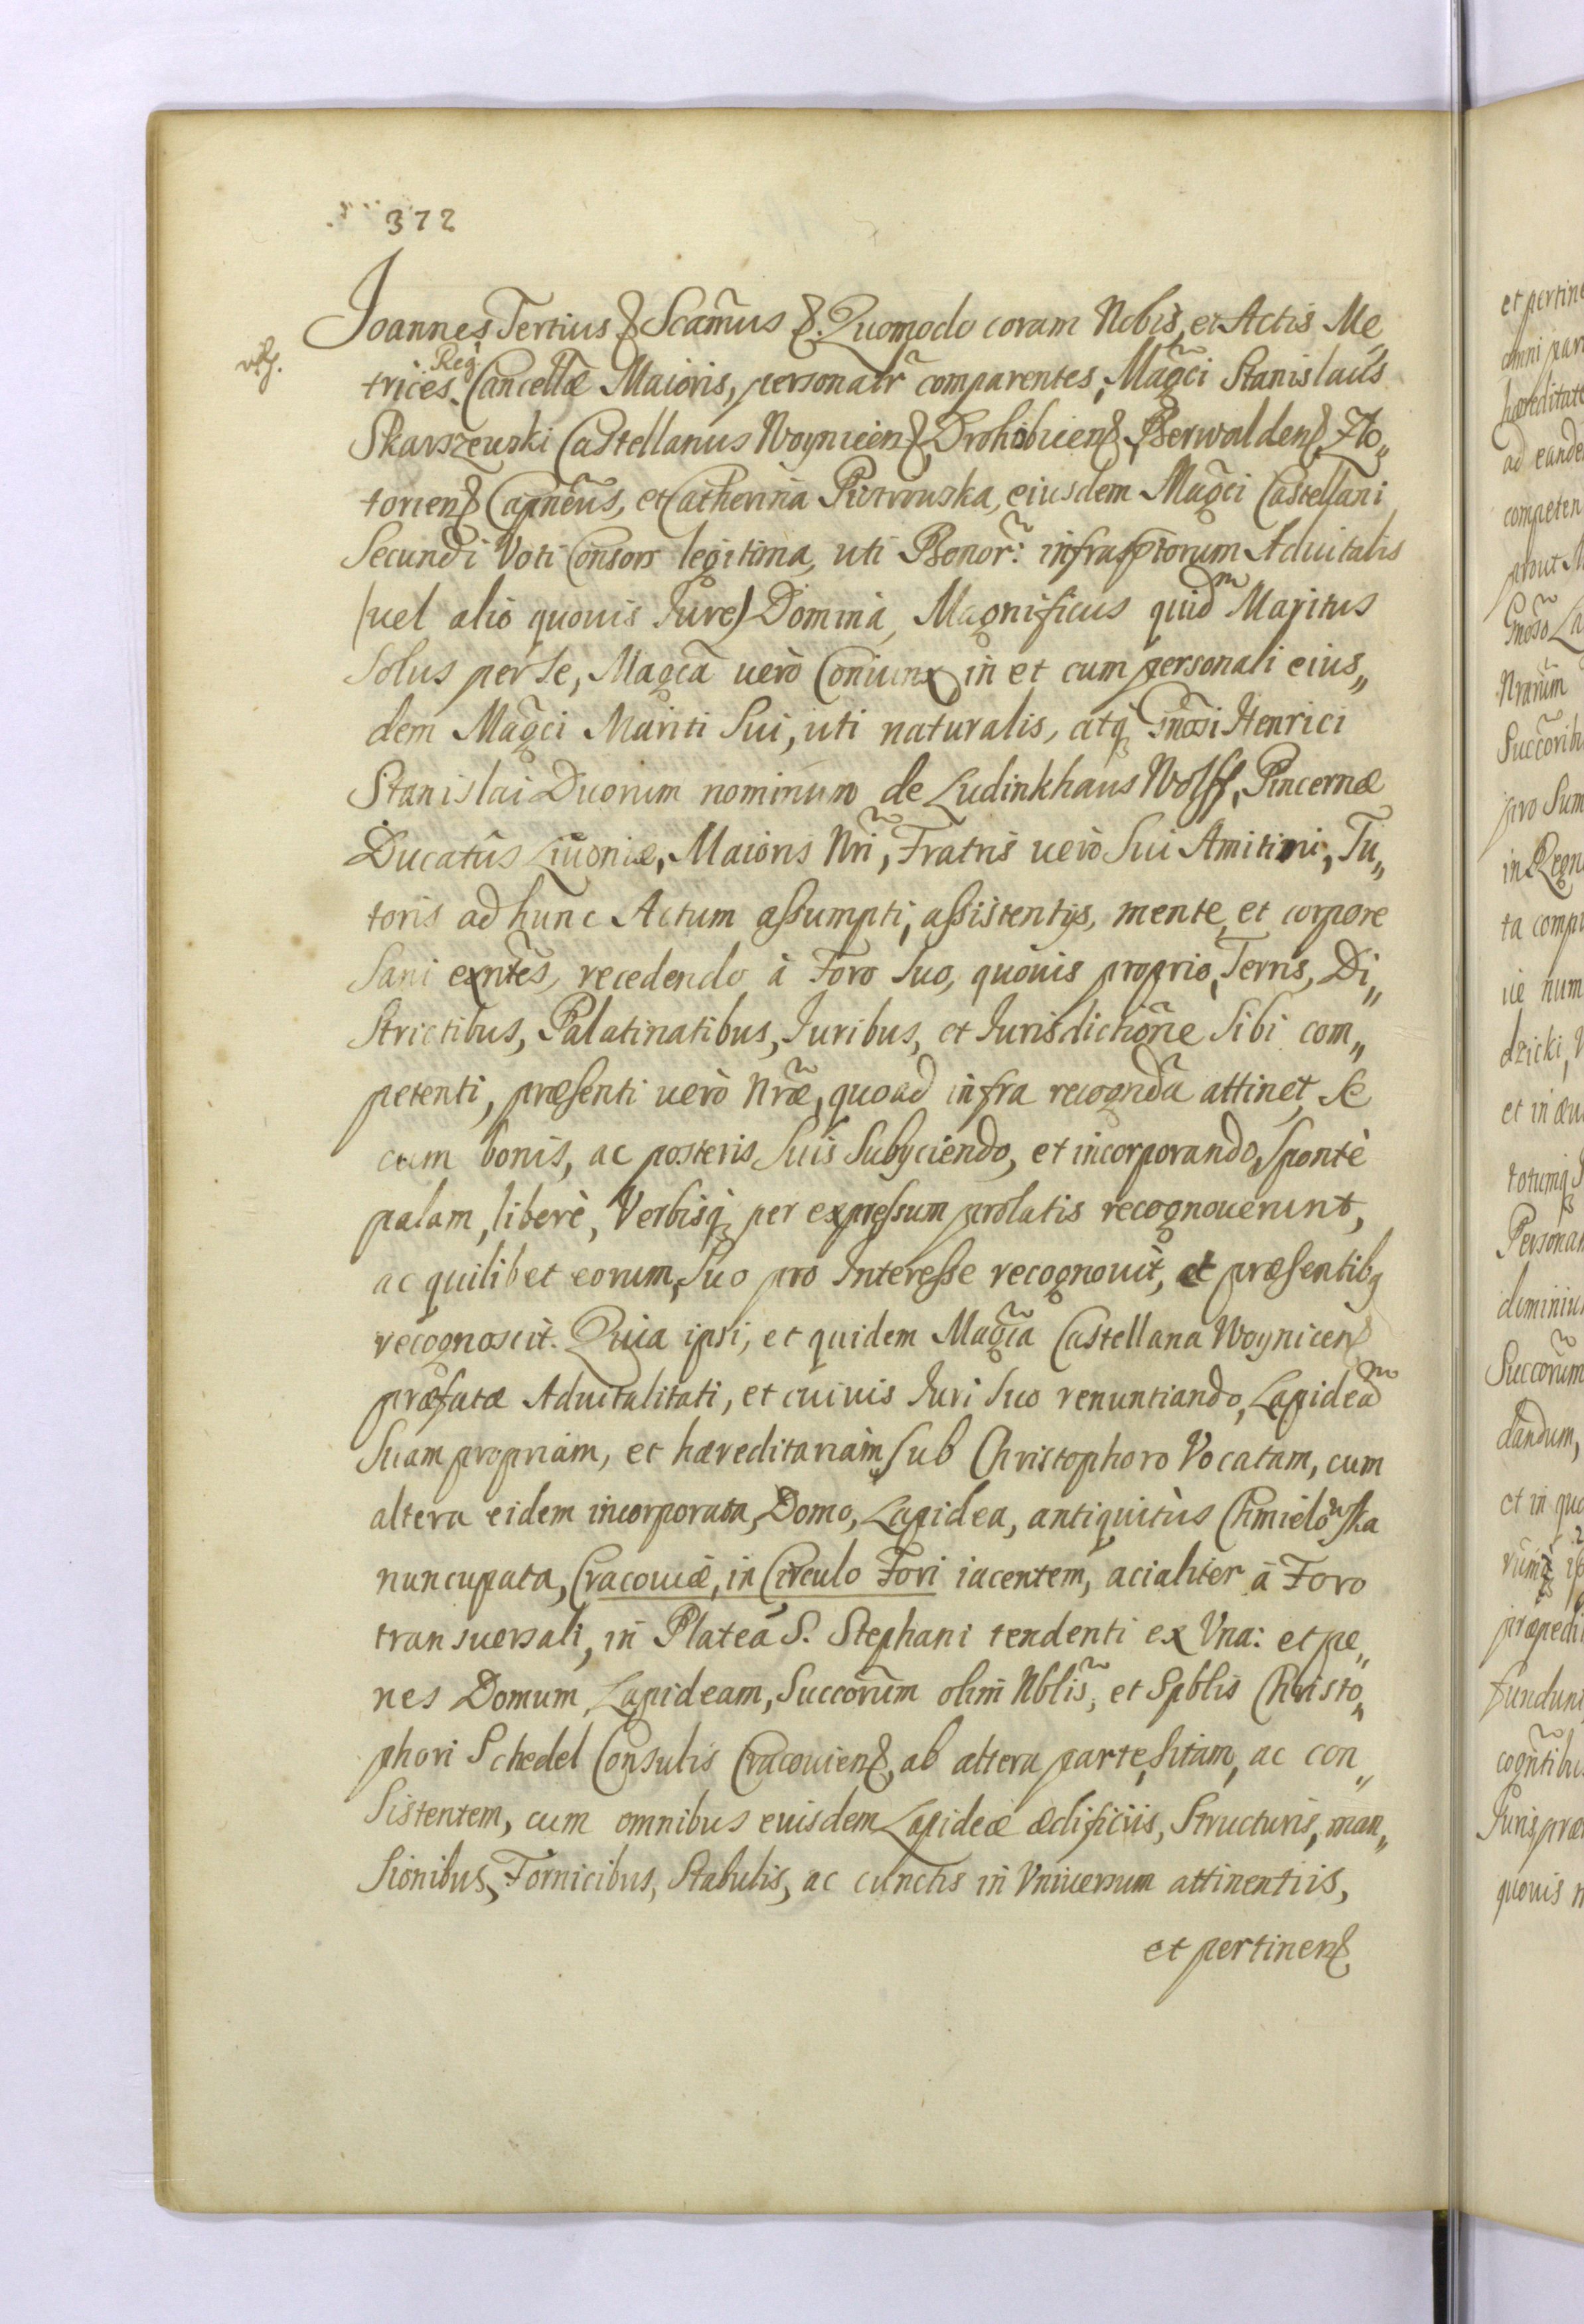 372
Joannes Tertius & Scam̃us &. Quomodo coram Nobis, et Actis Me„
trices Reg: Cancellæ Maioris, personalr̃ comparentes, Mag̃ci Stanislaus
Skarszewski Castellanus Woynicen̄, Drohobicen̄, Berwalden̄, Zło„
torien̄ Capn̄eus, et Catherina Piotrowska, eiusdem Mag̃ci Castellani
Secundi Voti Consors legitima, uti Bonor̃: infrasp̃torum Aduitalis
(uel alio quouis Jure) Domina, Magnificus quidm̃ Maritus
Solus per Se, Mag̃ca uero Coniunx in et cum personali eius„
dem Mag̃ci Mariti Sui, uti naturalis, atq̃ Gn̄osi Henrici
Stanislai Duorum nominum de Ludinkhaus Wolff, Pincernæ
Ducatus Liuoniæ, Maioris Nr̃i, Fratris uero Sui Amitini, Tu„
toris ad hunc Actum assumpti, assistentijs, mente, et corpore
Sani exn̄tes, recedendo à Foro Suo, quouis proprio, Terris, Di„
Strictibus, Palatinatibus, Juribus, et Jurisdictiõne Sibi com„
petenti, præsenti uerò Nr̃æ, quoad infra recognd̃a attinet, Se
cum bonis, ac posteris Suis Subyciendo, et incorporando, Spontè
palam, liberè, Verbisq̃ per expressum prolatis recognouerunt,
ac quilibet eorum, Suo pro Interesse recognouit, et præsentibq
recognoscit. Quia ipsi, et quidem Mag̃ca Castellana Woynicen̄
præfatæ Aduitalitati, et cuiuis Juri Suo renuntiando, Lapideam̃
Suam propriam, et hæreditariam, Sub Christophoro Vocatam, cum
altera eidem incorporata, Domo, Lapidea, antiquitùs Chmielowska
nuncupata, Cracouiæ, in Circulo Fori iacentem, acialiter à Foro
transuersali, in Plateã S. Stephani tendenti ex Vna: et pe„
nes Domum Lapideam, Succorum̃ olim Nblis̃, et Spblis Christo„
phori Schedel Consulis Cracouien̄, ab altera parte, Sitam, ac con„
Sistentem, cum omnibus euisdem Lapideæ ædificiis, Structuris, man„
Sionibus, Fornicibus, Stabulis, ac cunctis in Vniuersum attinentiis,
et pertinen̄